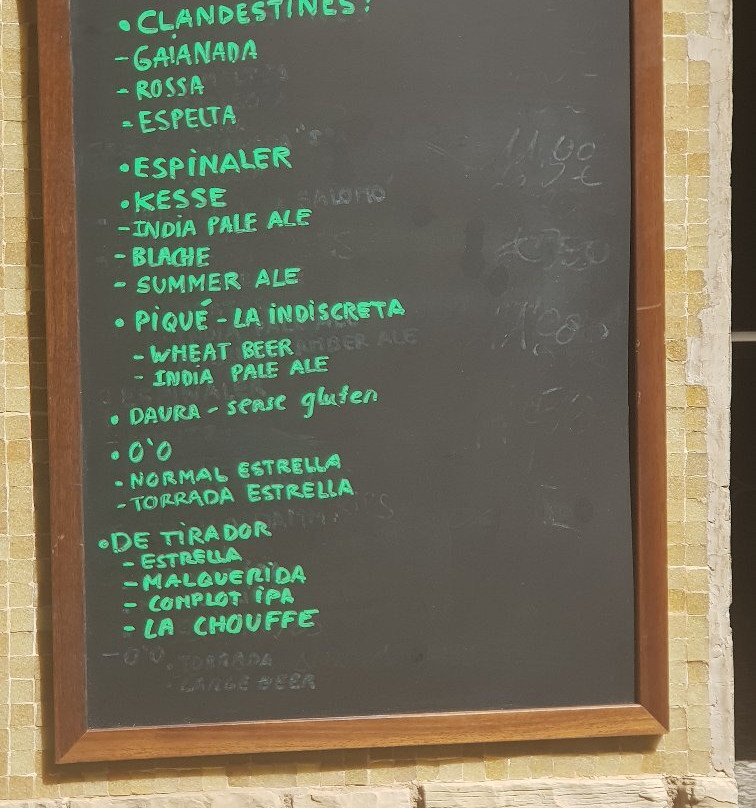 • CLANDESTINES:
- GAIANADA
- ROSSA
- ESPELTA
• ESPINALER
• KESSE
- INDIA PALE ALE
- BLACHE
- SUMMER ALE
• PIQUÉ - LA INDISCRETA
- WHEAT BEER
- INDIA PALE ALE
• DAURA - sense gluten
• 0'0
- NORMAL ESTRELLA
- TORRADA ESTRELLA
• DE TIRADOR
- ESTRELLA
- MALQUERIDA
- COMPLOT IPA
- LA CHOUFFE
- 0'0 • TORRADA